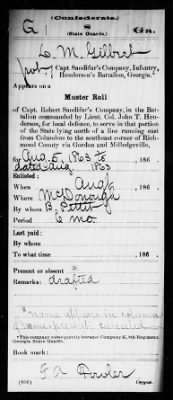 (Confederate)
G 8 Ga.
(State Guards.)
C. M. Gilbert
Pvt., Capt. Sandifar's Company, Infantry,
Henderson's Battalion, Georgia.*
Appears on a
Muster Roll
of Capt. Robert Sandifar's Company, in the Bat-
talion commanded by Lieut. Col. John T. Hen-
derson, for local defence, to serve in that portion
of the State lying north of a line running east
from Columbus to the southeast corner of Rich-
mond County via Gordon and Milledgeville,
for Aug. 5, 1863 to , 186 .
dated Aug. 1863
Enlisted:
When Aug. , 186 .
Where McDonough
By whom B. Pettit
Period 6 mo.
Last paid:
By whom
To what time , 186 .
Present or absent *
Remarks: drafted
* name appears in column
of names present, canceled
*This company subsequently became Company K, 8th Regiment
Georgia State Guards.
Book mark:
(654) Copyist.